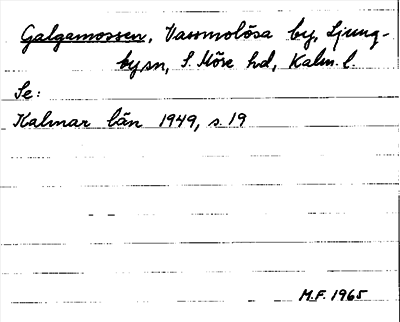 Galgamossen, Vassmolösa by, Ljung-
by sn, S. Möre hd, Kalm. l.
Se:
Kalmar län 1949, s. 19
M.F. 1965